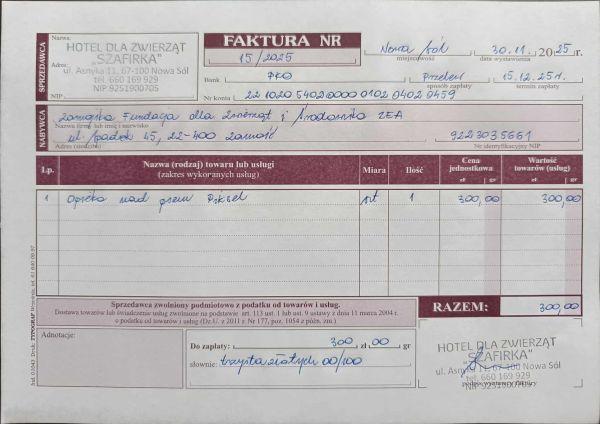 SPRZEDAWCA
Nazwa:
Adres:
NIP
HOTEL DLA ZWIERZĄT
"SZAFIRKA"
ul. Asnyka 11, 67-100 Nowa Sól
tel. 660 169 929
NIP 9251900705
FAKTURA NR
15/2025
Nowa Sól
miejscowość
30.11. 2025 r.
data wystawienia
Bank PKO
przelew
sposób zapłaty
15.12.25r.
termin zapłaty
Nr konta 22 1020 5402 0000 0102 0402 0459
NABYWCA
Zamojska Fundacja dla Zwierząt i Środowiska ZEA
Nazwa firmy lub imię i nazwisko
45, 22-400 Zamość
Adres (siedziba)
9223035661
Nr identyfikacyjny NIP
Lp.
Nazwa (rodzaj) towaru lub usługi
(zakres wykonanych usług)
Miara
Ilość
Cena
jednostkowa
zł gr
Wartość
towarów (usług)
zł gr
1 Opieka nad psem Piksel szt 1 300,00 300,00
Sprzedawca zwolniony podmiotowo z podatku od towarów i usług.
Dostawa towarów lub świadczenie usług zwolnione na podstawie art. 113 ust. 1 lub ust. 9 ustawy z dnia 11 marca 2004 r.
o podatku od towarów i usług (Dz.U. z 2011 r. Nr 177, poz. 1054 z późn. zm.)
RAZEM: 300,00
Adnotacje:
Do zapłaty: 300 zł 00 gr
słownie: trzysta złotych 00/100
HOTEL DLA ZWIERZĄT
"SZAFIRKA"
ul. Asnyka 11, 67-100 Nowa Sól
tel. 660 169 929
NIP 9251900705
podpis wystawcy faktury